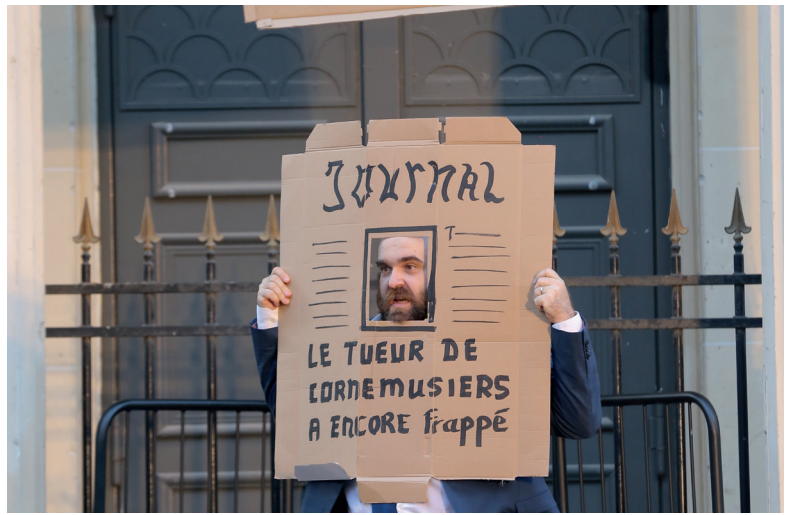 JOURNAL
T
LE TUEUR DE
CORNEMUSIERS
A ENCORE frappé